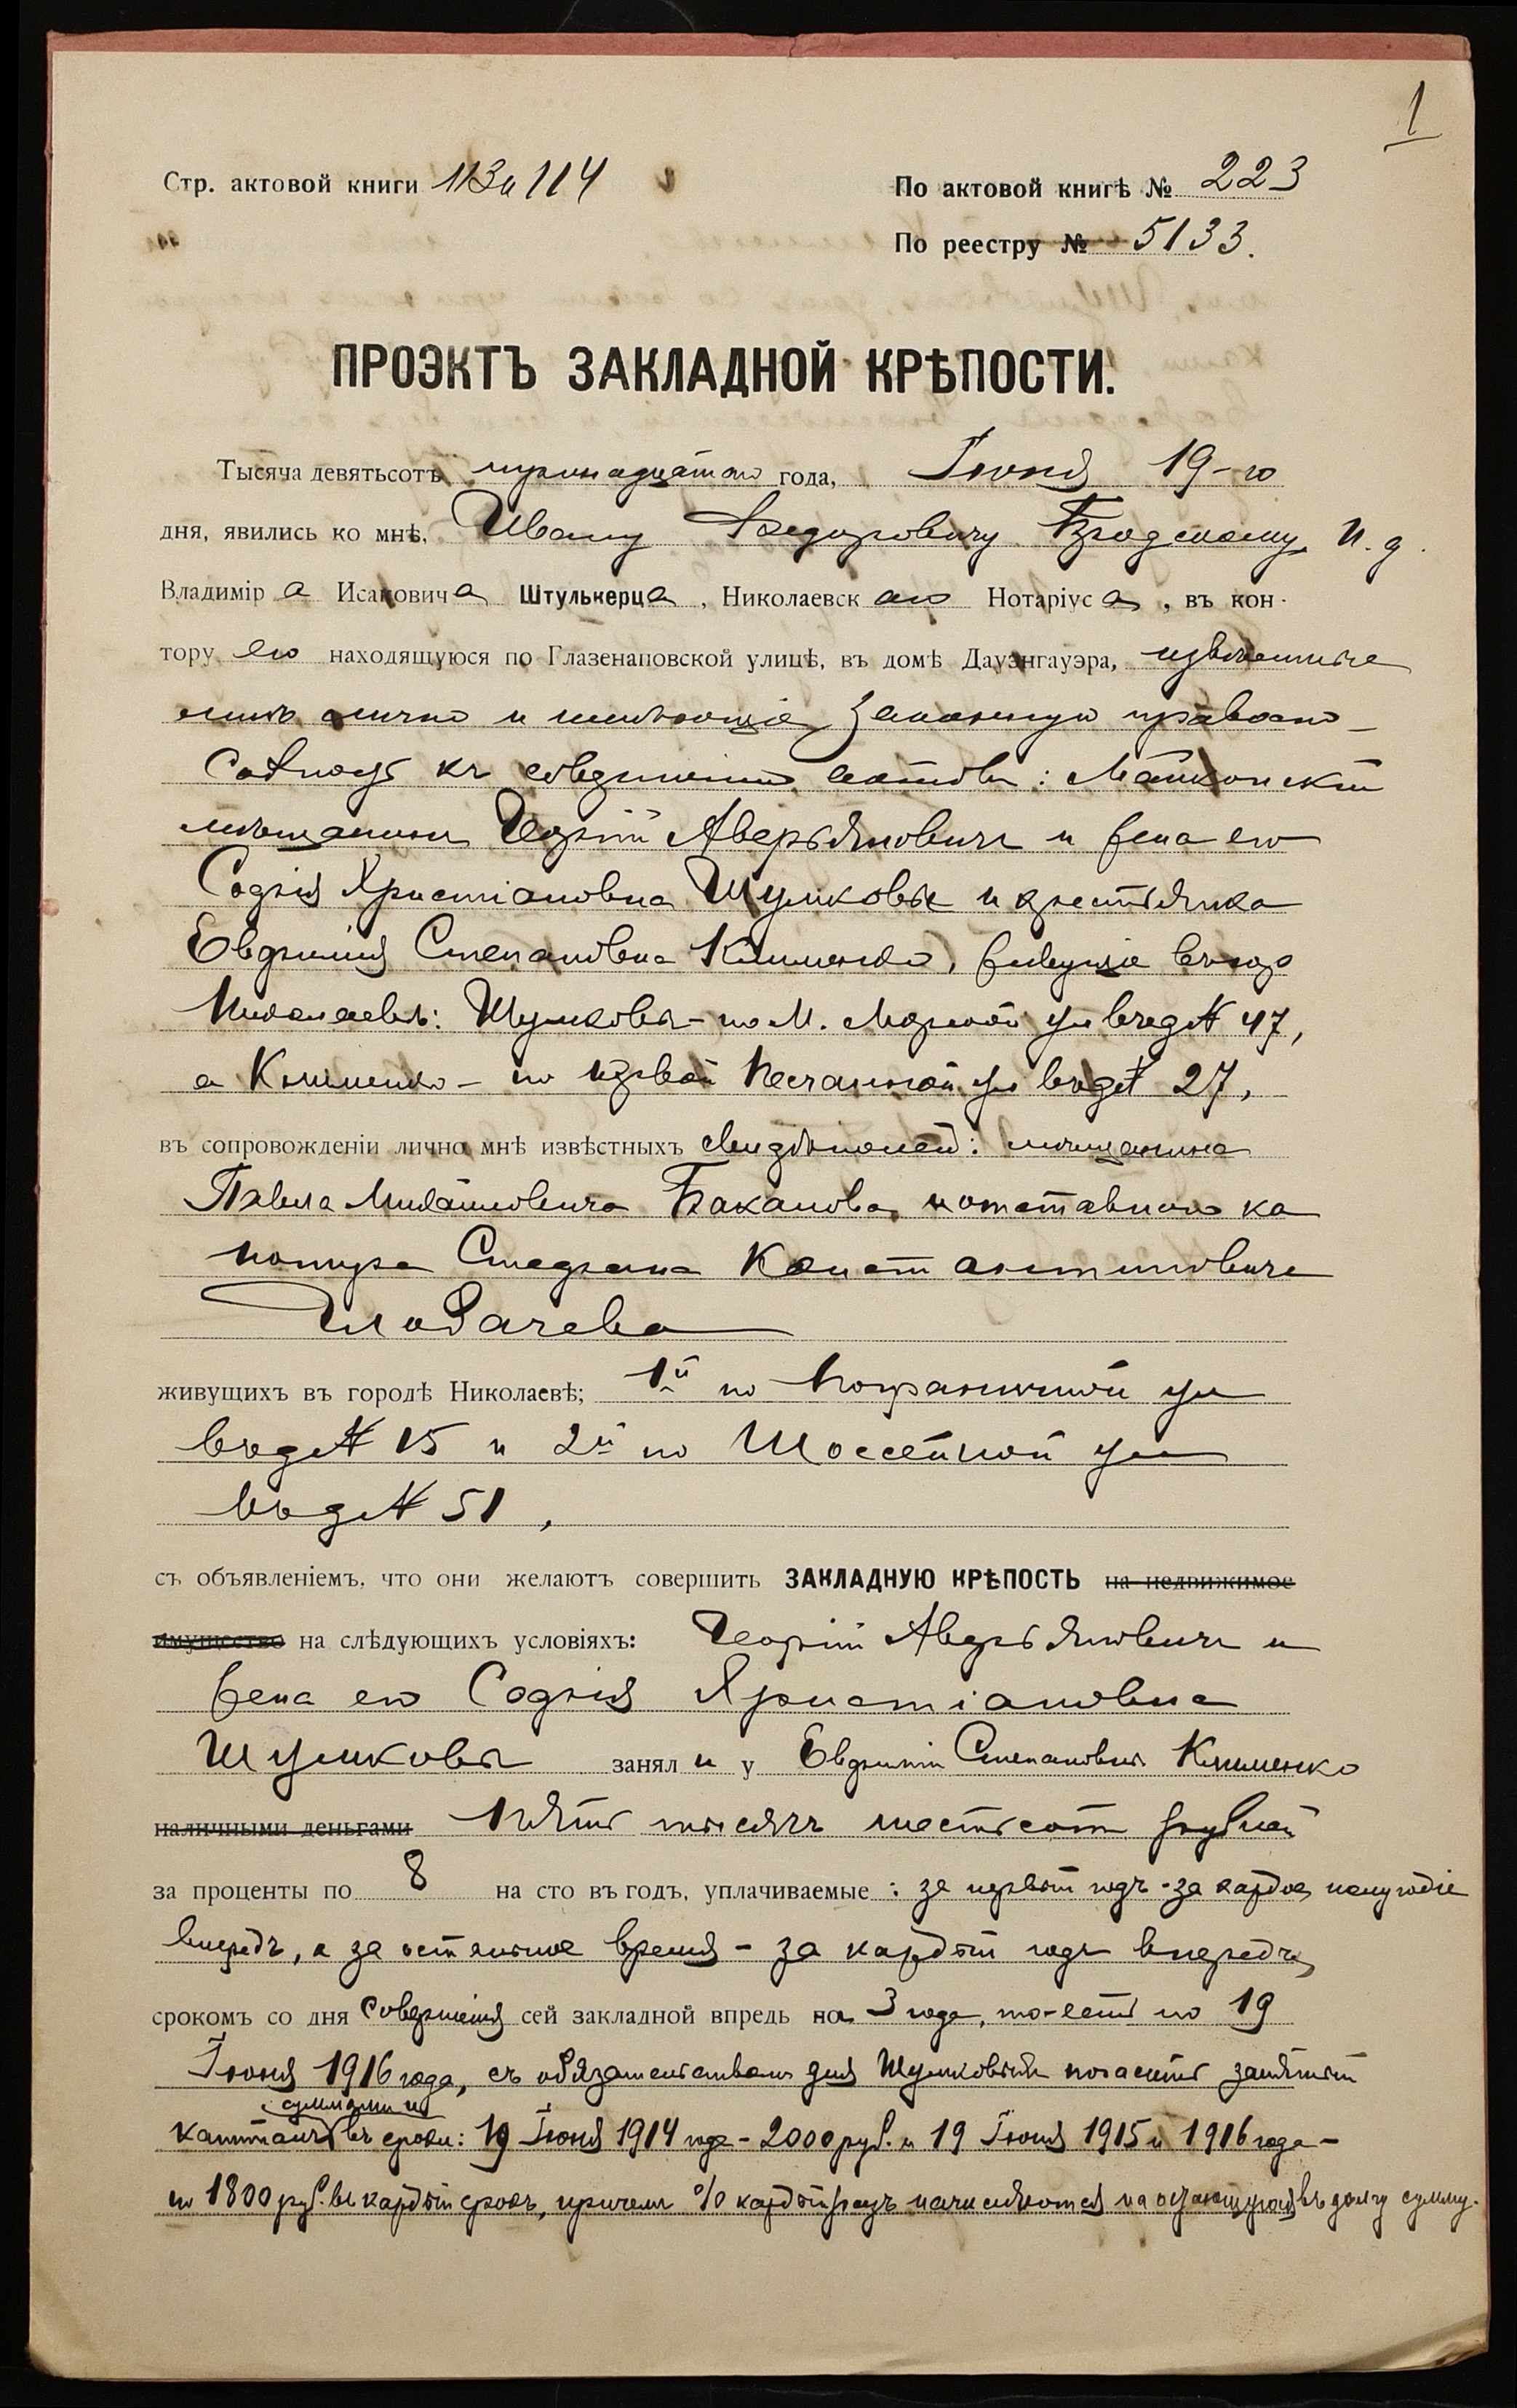 1
Стр. актовой книги 113 и 114
По актовой книгѣ № 223
По реестру № 5133.
ПРОЭКТЪ ЗАКЛАДНОЙ КРѢПОСТИ.
Тысяча девятьсотъ тринадцатаго года, Іюня 19-го
дня, явились ко мнѣ, Ивану Федоровичу Бродскому, и. д.
Владимір а Исаковича Штулькерца, Николаевск аго Нотаріуса, въ кон-
тору его находящуюся по Глазенаповской улицѣ, въ домѣ Даузнгауэра, извѣстные
мнѣ лично и имѣющіе законную правоспо-
собность къ совершенію актовъ: Майкопскій
мѣщанинъ Георгій Аверьяновичъ и жена его
Софія Христіановна Шумковы и крестьянка
Евфимія Степановна Клименко, живущіе въ гор.
Николаевѣ: Шумковы - по М. Морской ул въ д № 47,
а Клименко - по первой Песчаной ул въ д № 27,
въ сопровожденіи лично мнѣ извѣстныхъ свидѣтелей: мѣщанина
Павла Михайловича Баканова и отставного ка
нонира Стефана Константиновича
живущихъ въ городѣ Николаевѣ; 1й по Пограничной ул
въ д № 15 и 2й по Шоссейной ул
въ д № 51,
съ объявленіемъ, что они желаютъ совершить ЗАКЛАДНУЮ КРѢПОСТЬ на недвижимое
имущество на слѣдующихъ условіяхъ: Георгій Аверьяновичъ и
жена его Софія Христіановна
Шумковы занял и у Евфиміи Степановны Клименко
наличными деньгами пять тысячъ шестьсот рублей
за проценты по 8 на сто въ годъ, уплачиваемые: за первый годъ - за каждое полугодіе
впередъ, а за остальное время - за каждый годъ впередъ,
срокомъ со дня совершенія сей закладной впредь на 3 года, то-есть по 19
Іюня 1916 года, съ обязательствомъ для Шумковыхъ погасить занятый
суммами и
капиталъ въ сроки: 19 Іюня 1914 года - 2000 руб. и 19 Іюня 1915 и 1916 года -
по 1800 руб. въ каждый срокъ, причемъ % каждый разъ начисляются на остающуюся въ долгу сумму.